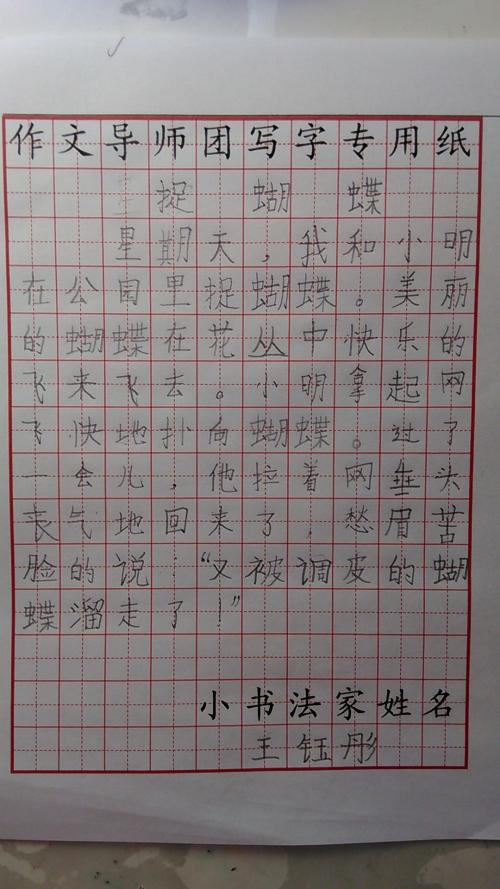 作文导师团写字专用纸
捉 蝴 蝶
星期天，我和小明
在公园里捉蝴蝶。美丽
的蝴蝶在花丛中快乐的
飞来飞去。小明拿起网
飞快地扑向蝴蝶。过了
一会儿，他拄着网垂头
丧气地回来了，愁眉苦
脸的说：“又被调皮的蝴
蝶溜走了！”
小书法家姓名
王钰彤